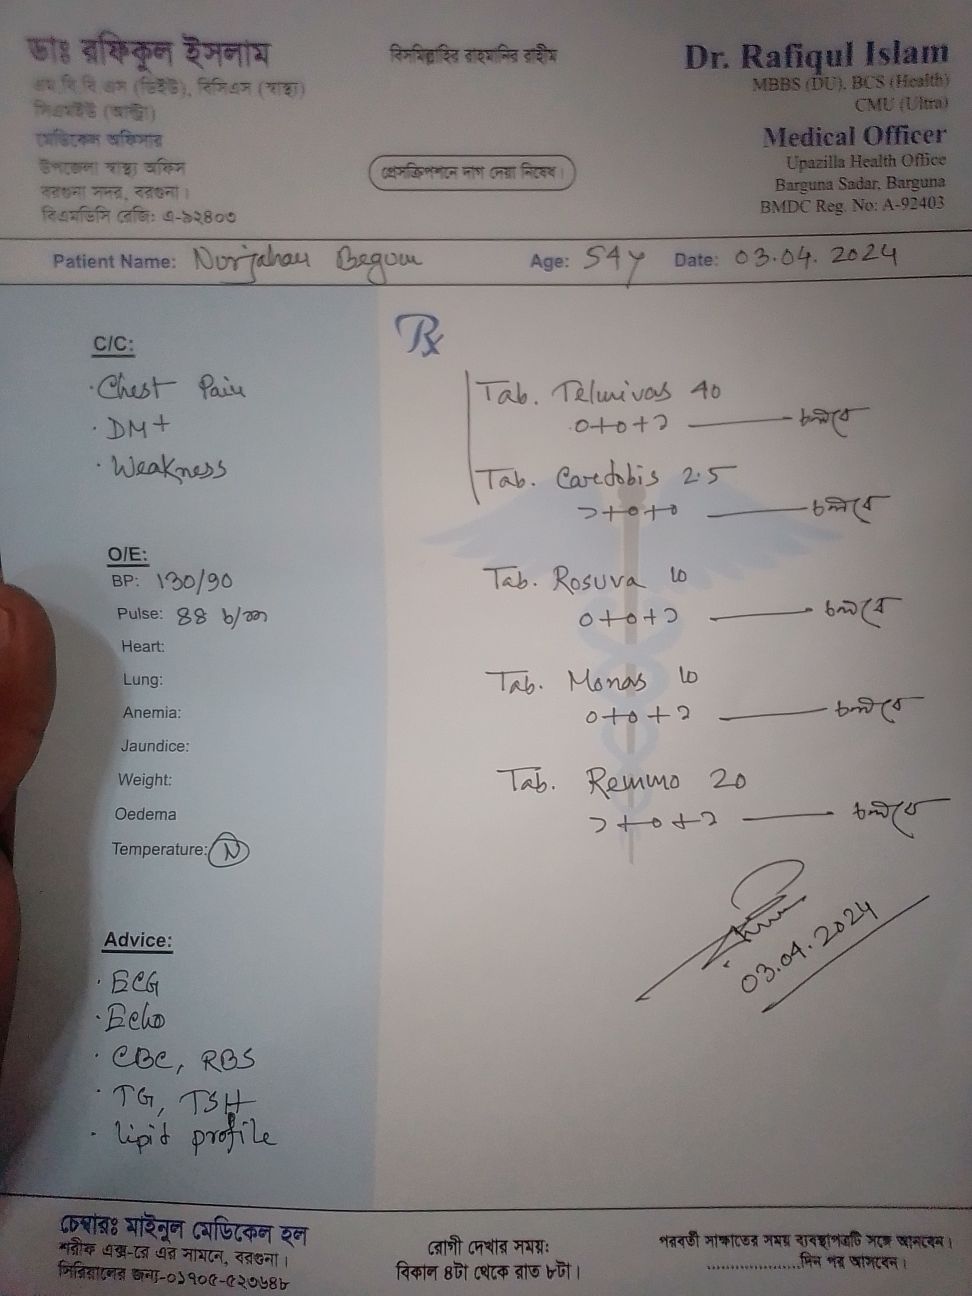 ডাঃ রফিকুল ইসলাম
এম.বি.বি.এস (ডিইউ), বিসিএস (স্বাস্থ্য)
সিএমইউ (আল্ট্রা)
মেডিকেল অফিসার
উপজেলা স্বাস্থ্য অফিস
বরগুনা সদর, বরগুনা।
বিএমডিসি রেজিঃ এ-৯২৪০৩
বিসমিল্লাহির রাহমানির রাহীম
প্রেসক্রিপশনে দাগ দেয়া নিষেধ।
Dr. Rafiqul Islam
MBBS (DU), BCS (Health)
CMU (Ultra)
Medical Officer
Upazilla Health Office
Barguna Sadar, Barguna
BMDC Reg. No: A-92403
Patient Name: Nurjahan Begum Age: 54y Date: 03.04.2024
C/C:
· Chest Pain
· DM+
· Weakness
O/E:
BP: 130/90
Pulse: 88 b/m
Heart:
Lung:
Anemia:
Jaundice:
Weight:
Oedema
Temperature: N
Advice:
· ECG
· Echo
· CBC, RBS
· TG, TSH
· lipid profile
Rx
Tab. Telmivas 40
০+০+১ — চলবে
Tab. Cardobis 2.5
১+০+০ — চলবে
Tab. Rosuva 10
০+০+১ — চলবে
Tab. Monas 10
০+০+১ — চলবে
Tab. Remmo 20
১+০+১ — চলবে
03.04.2024
চেম্বারঃ মাইনুল মেডিকেল হল
শরীফ এক্স-রে এর সামনে, বরগুনা।
সিরিয়ালের জন্য-০১৭০৫-৫২৩৬৪৮
রোগী দেখার সময়ঃ
বিকাল ৪টা থেকে রাত ৮টা।
পরবর্তী সাক্ষাতের সময় ব্যবস্থাপত্রটি সঙ্গে আনবেন।
....................দিন পর আসবেন।